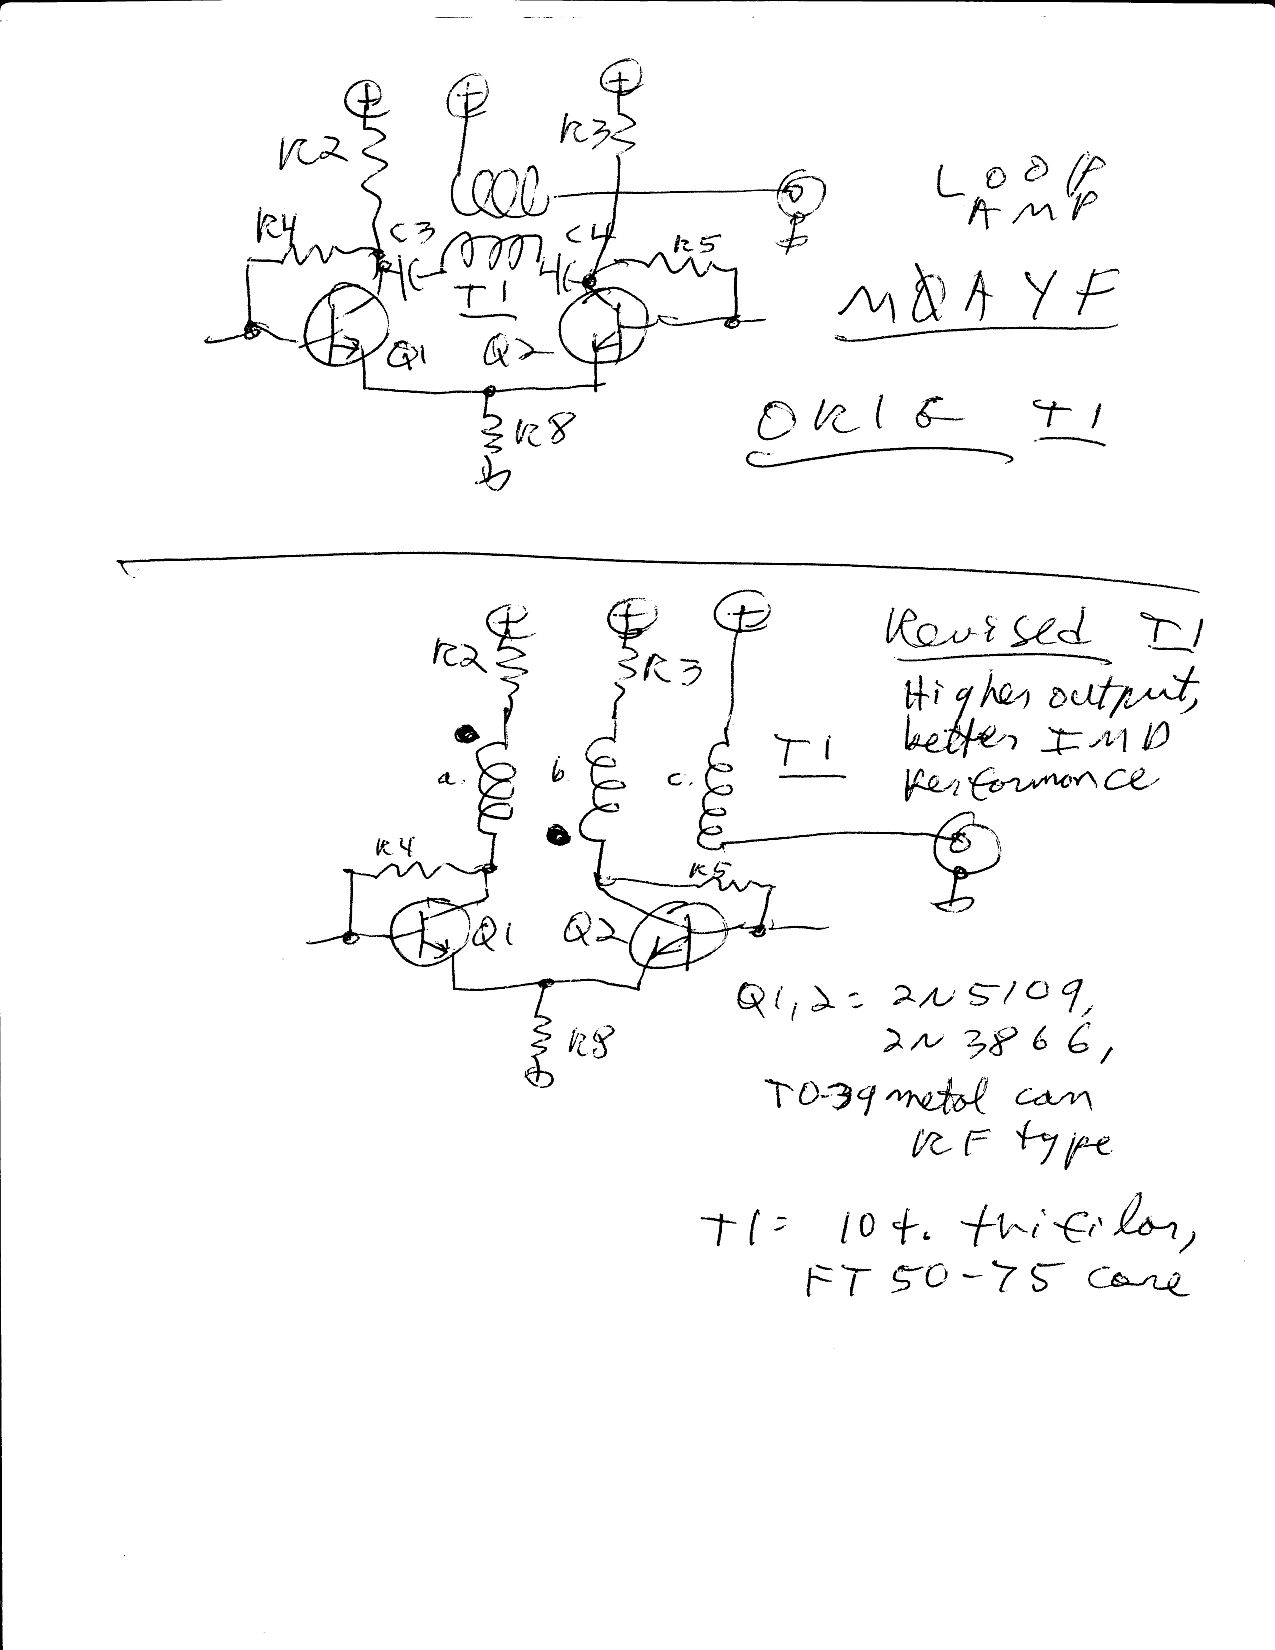 R2
R3
LOOP
AMP
R4
C3
C4
R5
T1
MØAYF
Q1
Q2
R8
ORIG T1
Revised T1
R2
R3
Higher output,
better IMD
Performance
T1
a.
b
c.
R4
R5
Q1
Q2
Q1,2 = 2N5109,
2N3866,
R8
TO-39 metal can
RF type
T1 = 10 t. trifilar,
FT50-75 core